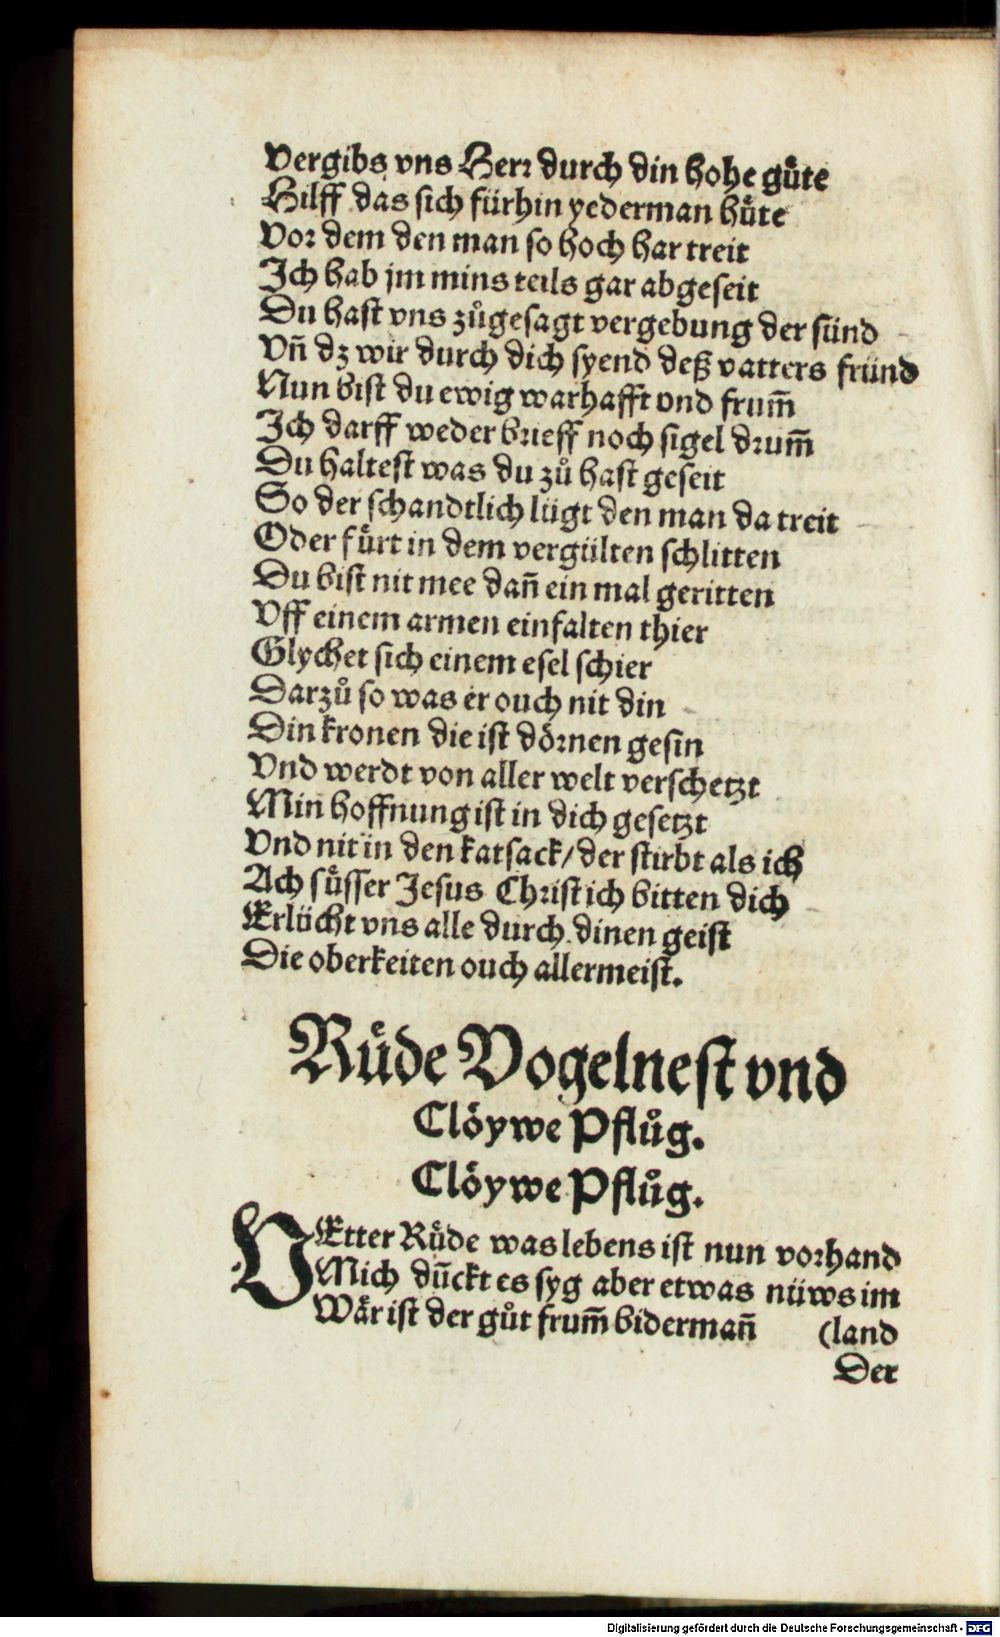 Vergibs vns Herꝛ durch din hohe guͤte
Hilff das sich fürhin yederman huͤte
Voꝛ dem den man so hoch har treit
Ich hab jm mins teils gar abgeseit
Du hast vns zuͦgesagt vergebung der sünd
Vñ dz wir durch dich syend deß vatters fründ
Nun bist du ewig warhafft vnd frum̃
Ich darff weder bꝛieff noch sigel dꝛum̃
Du haltest was du zuͦ hast geseit
So der schandtlich lügt den man da treit
Oder fuͤrt in dem vergülten schlitten
Du bist nit mee dañ ein mal geritten
Vff einem armen einfalten thier
Glychet sich einem esel schier
Darzuͦ so was er ouch nit din
Din kronen die ist doͤꝛnen gesin
Vnd werdt von aller welt verschetzt
Min hoffnung ist in dich gesetzt
Vnd nit in den katsack/ der stirbt als ich
Ach suͤsser Jesus Chꝛist ich bitten dich
Erlücht vns alle durch dinen geist
Die oberkeiten ouch allermeist.
Ruͤde Vogelnest vnd
Cloͤywe Pfluͦg.
Cloͤywe Pfluͦg.
VEtter Ruͤde was lebens ist nun voꝛhand
Mich dũckt es syg aber etwas nüws im
Waͤr ist der guͦt frum̃ bidermañ (land
Der
Digitalisierung gefördert durch die Deutsche Forschungsgemeinschaft - DFG